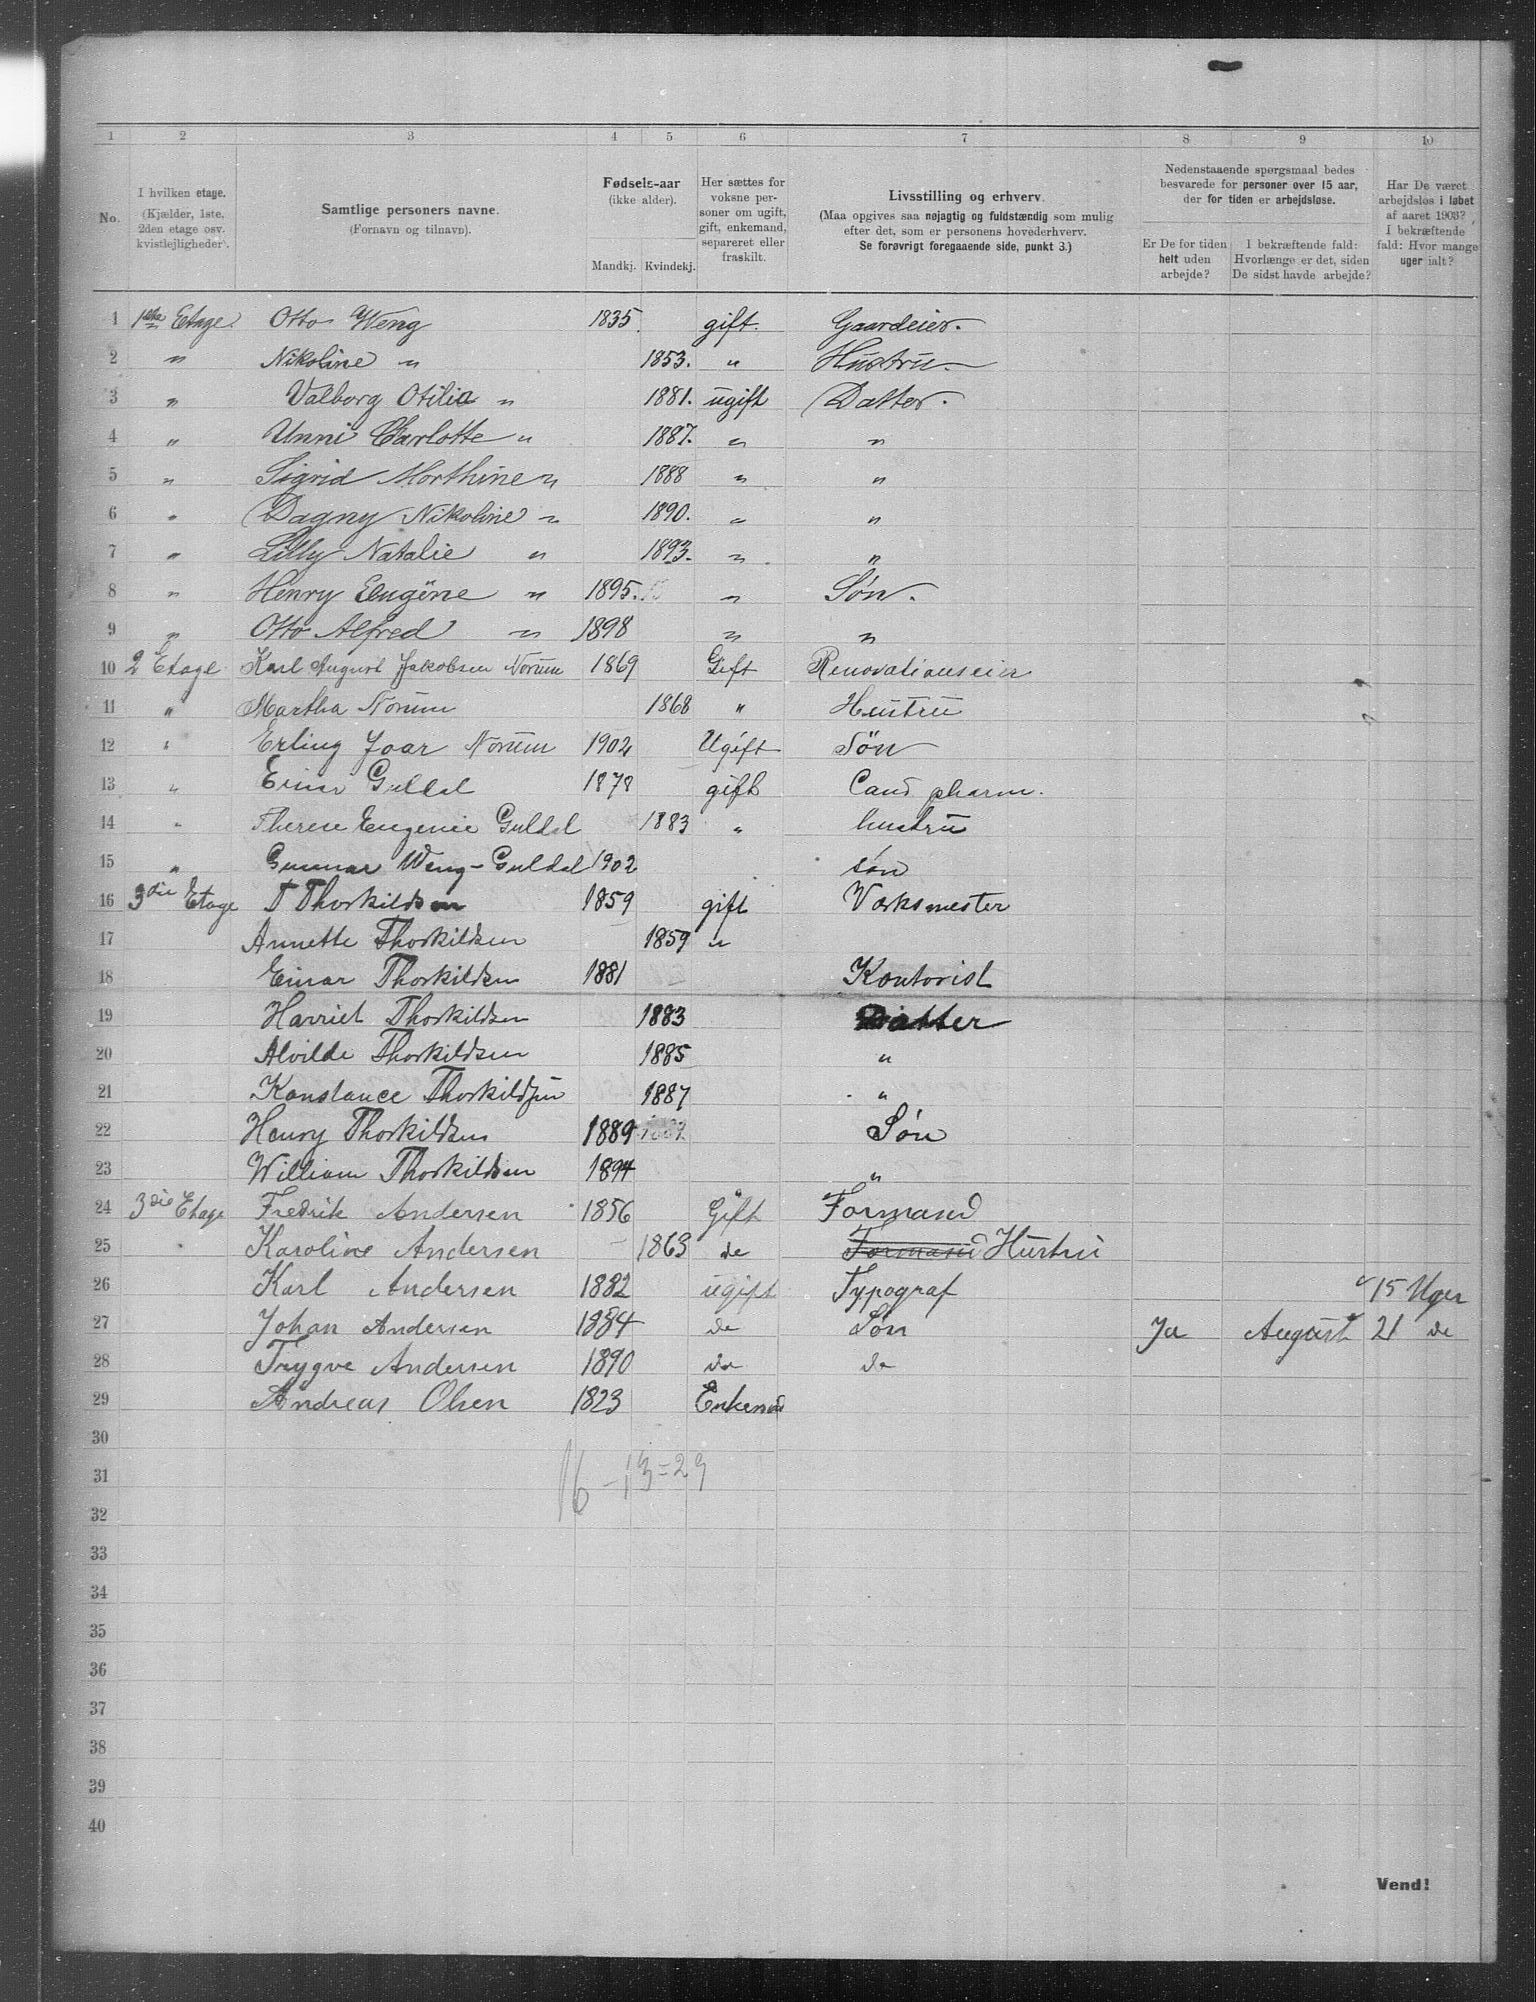 1 2 3 4 5 6 7 8 9 10
No. | I hvilken etage. (Kjælder, 1ste, 2den etage osv. kvistleiligheder). | Samtlige personers navne. (Fornavn og tilnavn). | Fødsels-aar (ikke alder). Mandkj. Kvindekj. | Her sættes for voksne personer om ugift, gift, enkemand, separeret eller fraskilt. | Livsstilling og erhverv. (Maa opgives saa nøjagtig og fuldstændig som mulig efter det, som er personens hovederhverv. Se forøvrigt foregaaende side, punkt 3.) | Nedenstaaende spørgsmaal bedes besvarede for personer over 15 aar, der for tiden er arbejdsløse. Er De for tiden helt uden arbejde? | I bekræftende fald: Hvorlænge er det, siden De sidst havde arbejde? | Har De været arbejdsløs i løbet af aaret 1903? I bekræftende fald: Hvor mange uger ialt?
1 1ste Etage. Otto Weng 1835. gift. Gaardeier.
2 " Nikoline " 1853. " Hustru
3 " Valborg Otilia " 1881. ugift Datter.
4 " Unni Charlotte " 1887. " "
5 " Sigrid Morthine " 1888 " "
6 " Dagny Nikoline " 1890. " "
7 " Lilly Natalie " 1893. " "
8 " Henry Eugéne " 1895. " Søn.
9 " Otto Alfred " 1898 " "
10 2 Etage Karl August Jakobsen Norum 1869 Gift Renovationseier
11 " Martha Norum 1868 " Hustru
12 " Erling Joar Norum 1902 Ugift Søn
13 " Einar Guldal 1878 gift Cand pharm.
14 " Therese Eugenie Guldal 1883 " hustru
15 " Gunnar Weng-Guldal 1902 søn
16 3die Etage T Thorkildsen 1859 gift Værksmester
17 Annette Thorkildsen 1859 "
18 Einar Thorkildsen 1881 Kontorist
19 Harriet Thorkildsen 1883 Datter
20 Alvilde Thorkildsen 1885 "
21 Konstance Thorkildsen 1887 "
22 Henry Thorkildsen 1889 Søn
23 William Thorkildsen 1894 "
24 3die Etage Fredrik Andersen 1856 Gift Formand
25 " Karoline Andersen 1863 do Formand Hustru
26 Karl Andersen 1882 ugift Typograf 15 Uger
27 Johan Andersen 1884 do Søn Ja August 21 do
28 Trygve Andersen 1890 do do
29 Andreas Olsen 1823 Enkemand
30
31 16 - 13 = 29
32
33
34
35
36
37
38
39
40
Vend!